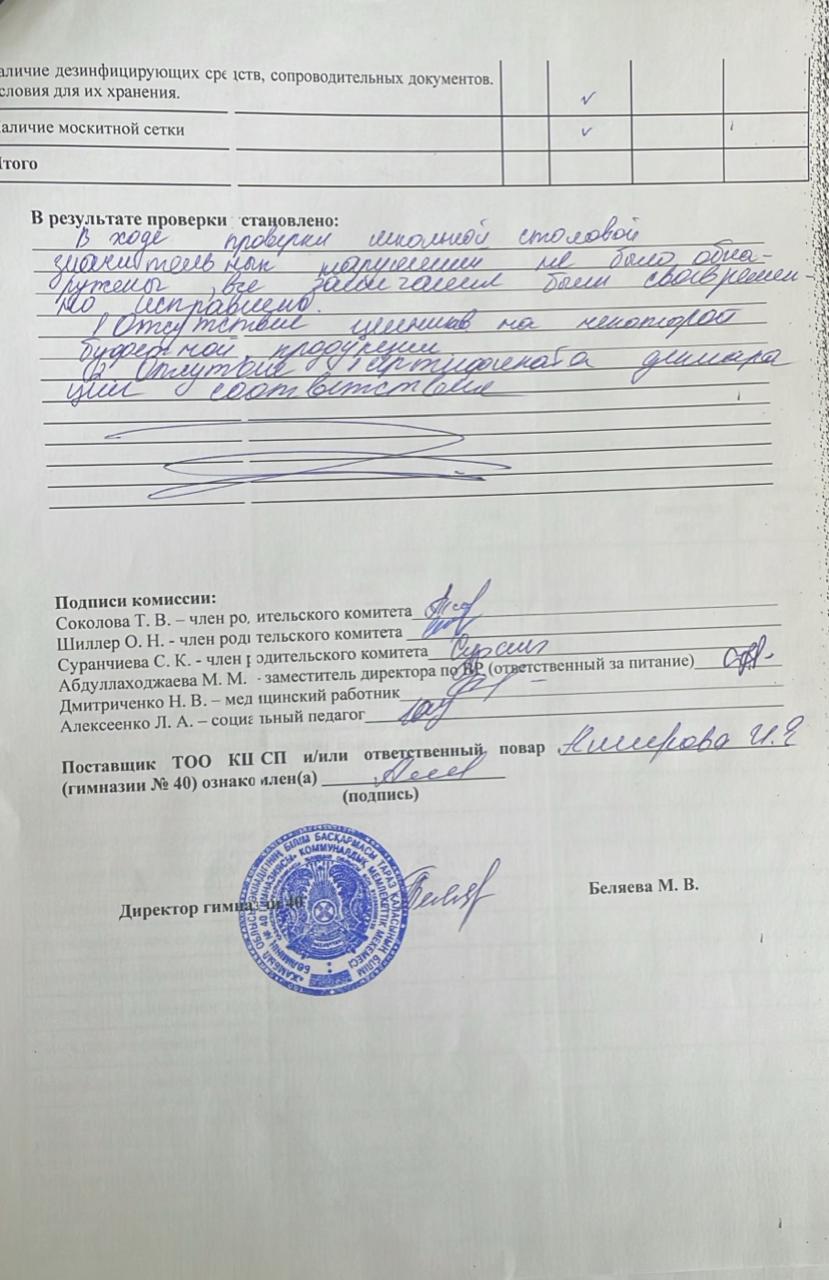 аличие дезинфицирующих сре дств, сопроводительных документов.
словия для их хранения.
аличие москитной сетки
Итого
В результате проверки становлено:
В ходе проверки школьной столовой
значительных нарушений не было обна-
ружены, все замечания были своевремен-
но исправлено.
1) Отсутствие ценников на некоторой
буфетной продукции
2) Отсутствие сертификата деклара
ции соответствия
Подписи комиссии:
Соколова Т. В. – член ро, ительского комитета
Шиллер О. Н. - член роді тельского комитета
Суранчиева С. К. - член р одительского комитета
Абдуллаходжаева М. М. - заместитель директора по ВР (ответственный за питание)
Дмитриченко Н. В. – мед ицинский работник
Алексеенко Л. А. – социа льный педагог
Поставщик ТОО КШ СП и/или ответственный повар
(гимназии № 40) ознако млен(а)
(подпись)
Директор гимназии 40
Беляева М. В.